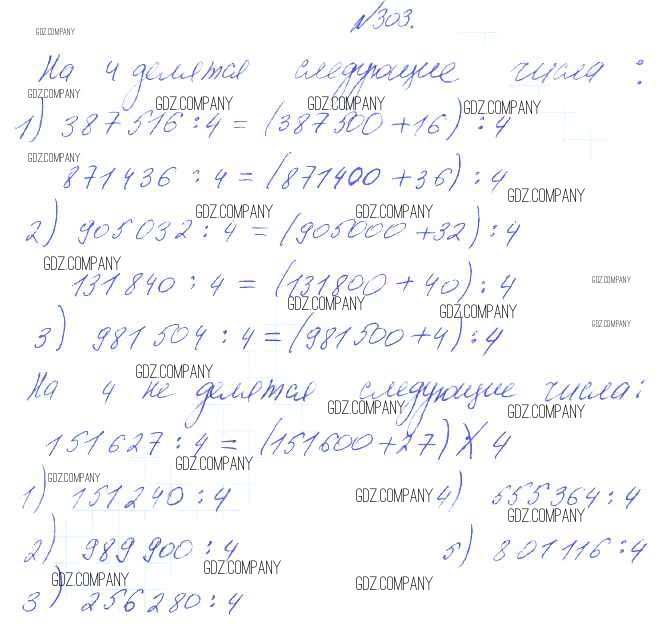 №303.
GDZ.COMPANY
На 4 делятся следующие числа:
GDZ.COMPANY GDZ.COMPANY GDZ.COMPANY GDZ.COMPANY
1) 387516 : 4 = (387500 + 16) : 4
GDZ.COMPANY
871436 : 4 = (871400 + 36) : 4
GDZ.COMPANY GDZ.COMPANY GDZ.COMPANY
2) 905032 : 4 = (905000 + 32) : 4
GDZ.COMPANY
131840 : 4 = (131800 + 40) : 4
GDZ.COMPANY GDZ.COMPANY GDZ.COMPANY
3) 981504 : 4 = (981500 + 4) : 4
GDZ.COMPANY
GDZ.COMPANY
На 4 не делятся следующие числа:
GDZ.COMPANY GDZ.COMPANY
151627 : 4 = (151600 + 27) : 4
GDZ.COMPANY GDZ.COMPANY
1) 151240 : 4
GDZ.COMPANY 4) 555364 : 4
GDZ.COMPANY
2) 989900 : 4
5) 801116 : 4
GDZ.COMPANY GDZ.COMPANY GDZ.COMPANY
3) 256280 : 4